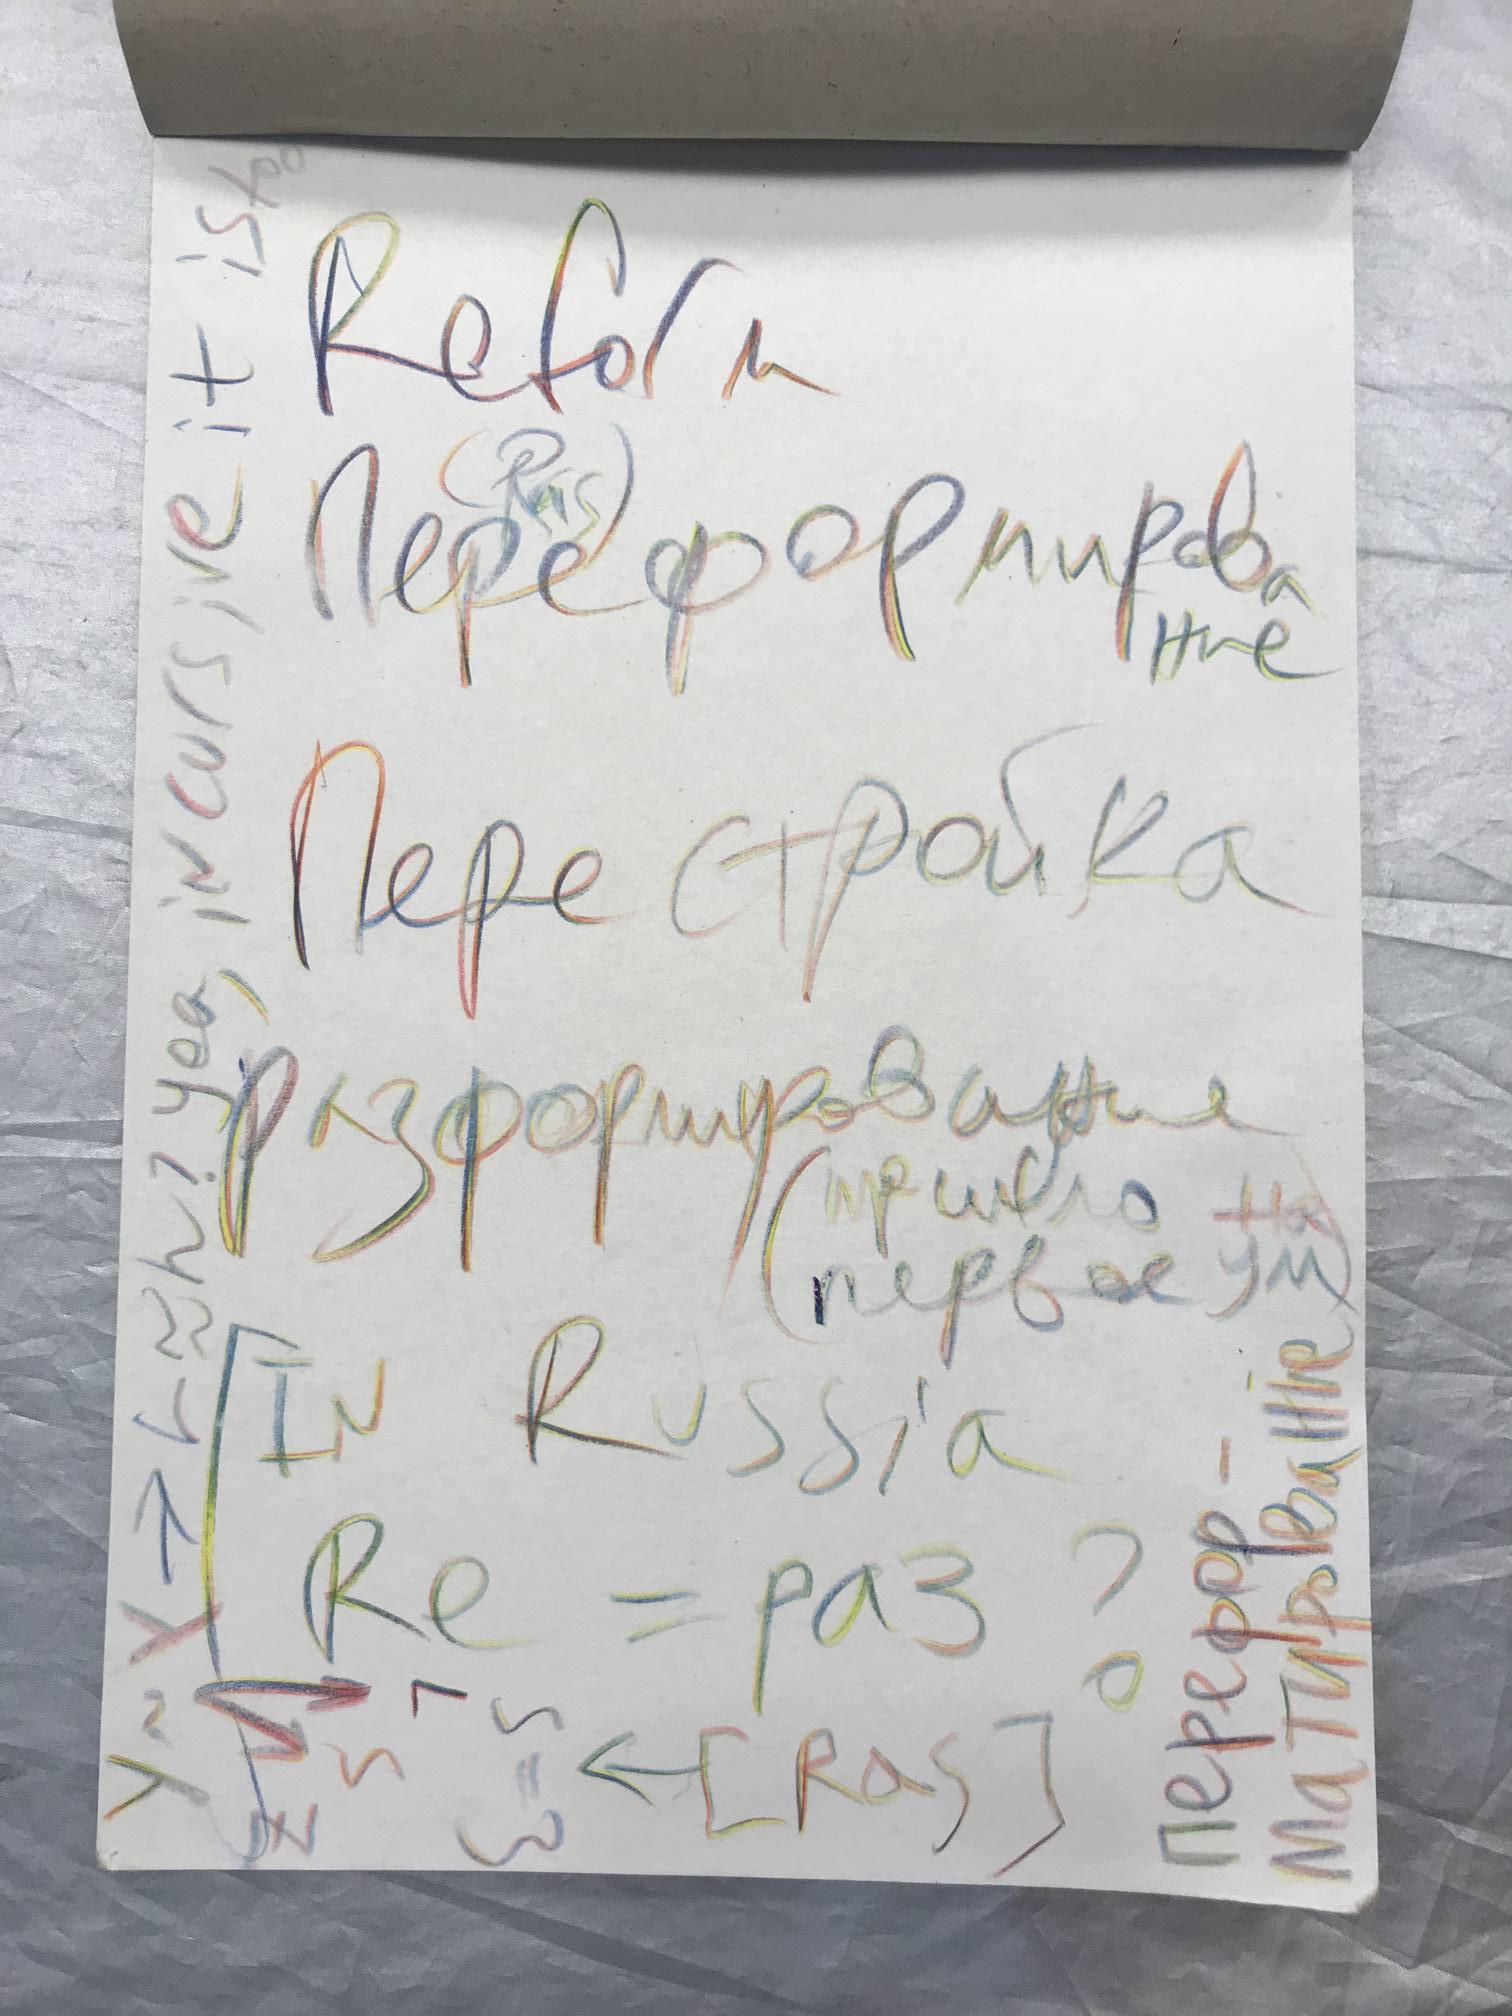 Reform
(Ras)
Переформирова
ние
Перестройка
разформирование
(пришло на
первое ум)
[In Russia
Re = раз?
← [Ras]
з = s
yea, in cursive it is too
Перефор-
МаТИРОваНіе